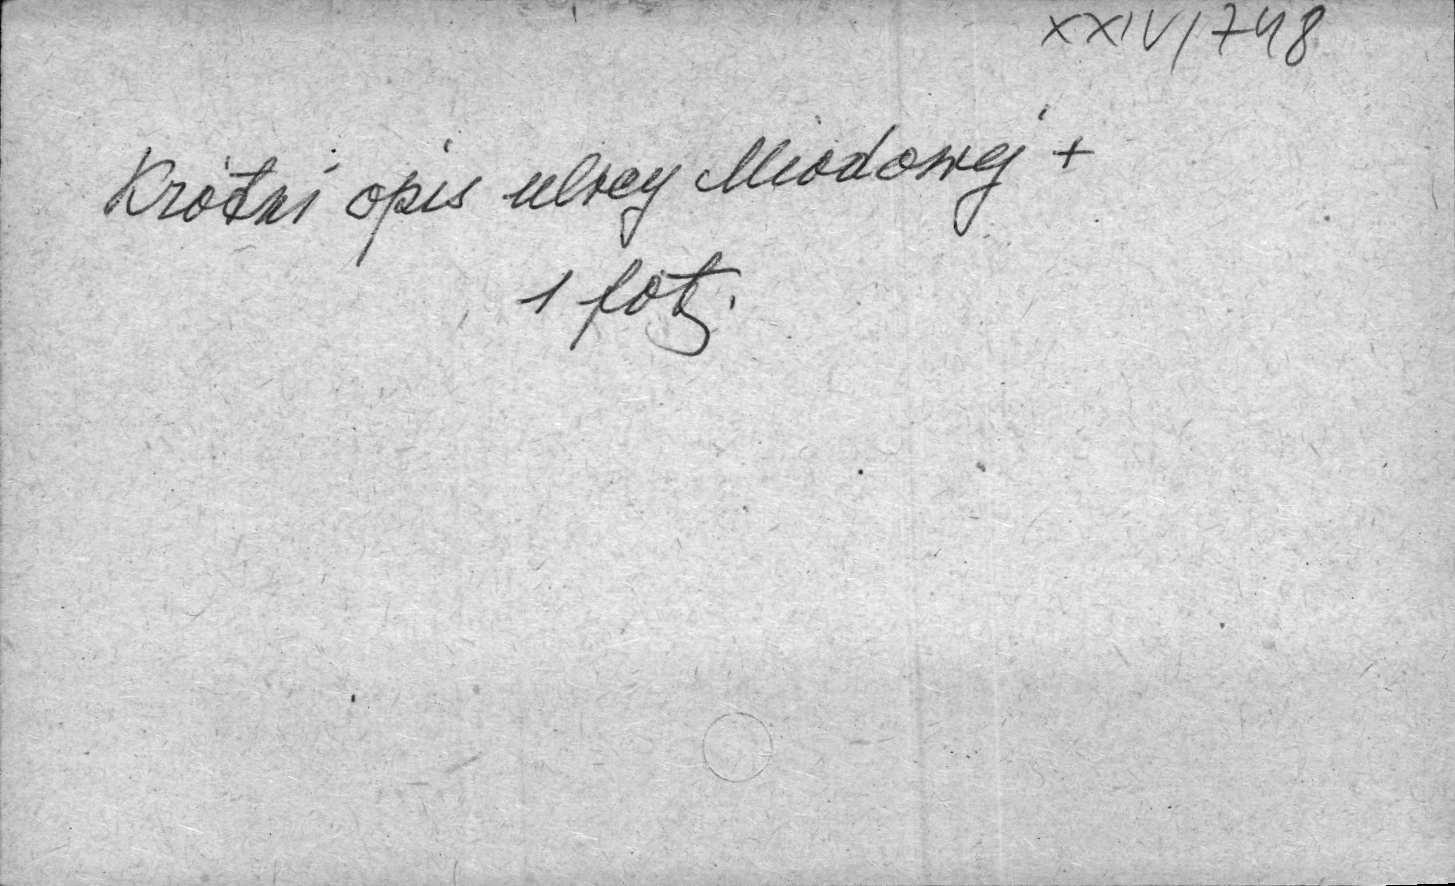 XXIV/748
Krótki opis ulicy Miodowej +
1 fot.